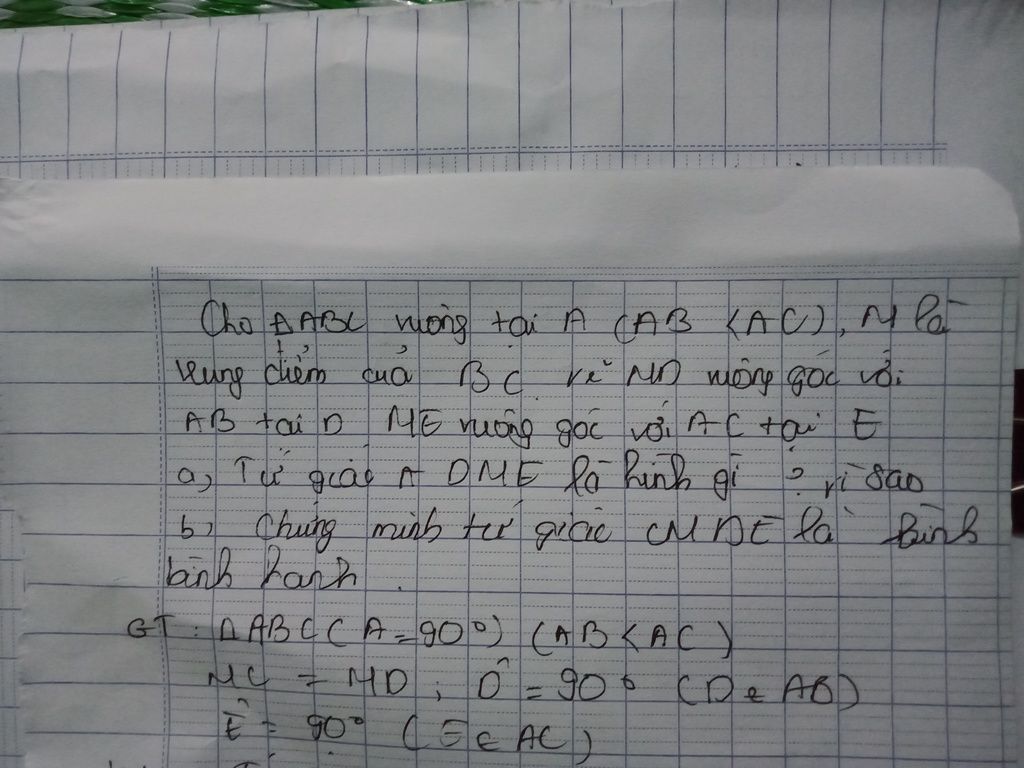 Cho ΔABC vuông tại A (AB <AC), M là
trung điểm của BC vẽ MD vuông góc với
AB tại D ME vuông góc với AC tại E
a, Tứ giác A DME là hình gì ? vì sao
b, Chứng minh tứ giác CMDE là hình
bình hành.
GT: ΔABC (A=90°) (AB<AC)
MC = MD ; D̂ = 90° (D∈AB)
Ê = 90° (E∈AC)